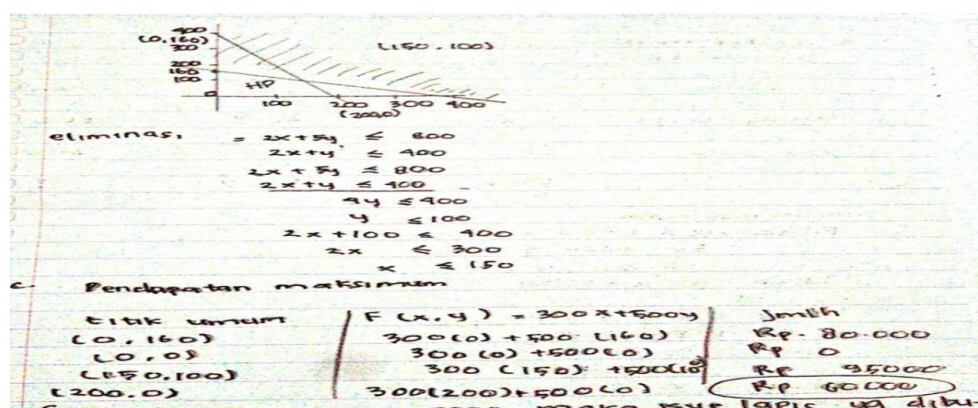 400
(0,160)
300
(150,100)
200
160
100
HP
0
100 200 300 400
(200,0)
eliminasi = 2x+5y ≤ 800
2x+y ≤ 400
2x + 5y ≤ 800
2x+y ≤ 400 -
4y ≤ 400
y ≤ 100
2x+100 ≤ 400
2x ≤ 300
x ≤ 150
c Pendapatan maksimum
titik F(x,y) = 300x+500y Jmlh
(0,160) 300(0)+500(160) Rp. 80.000
(0,0) 300(0)+500(0) Rp 0
(150,100) 300(150)+500(10 Rp 95000
(200,0) 300(200)+500(0) Rp 60000
maka kue lapis yg dibu